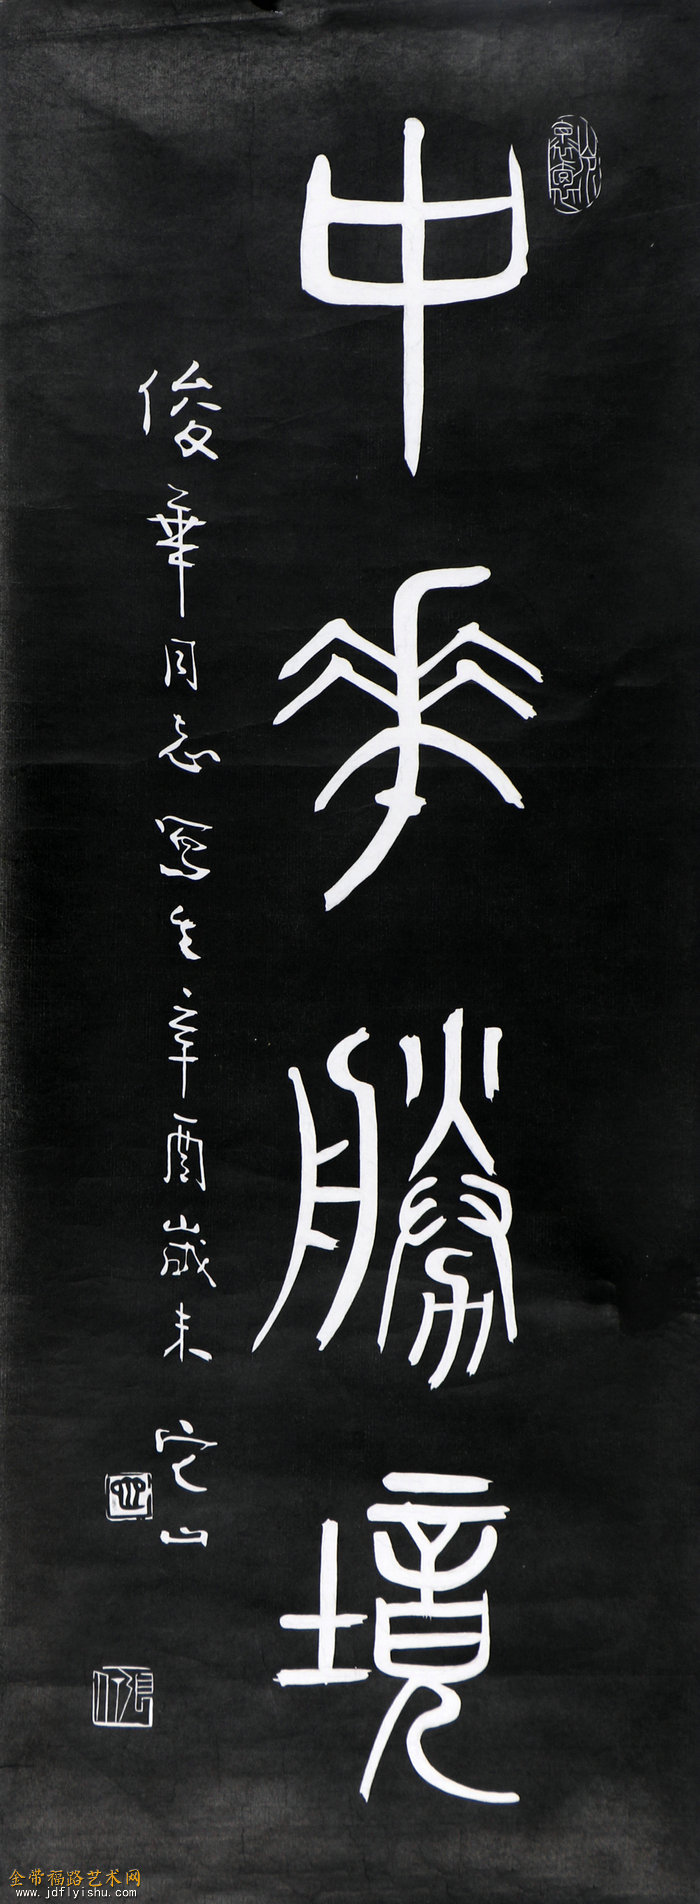 中華勝境
俊華同志寫生辛酉歲末定山
金带福路艺术网
www.jdflyishu.com